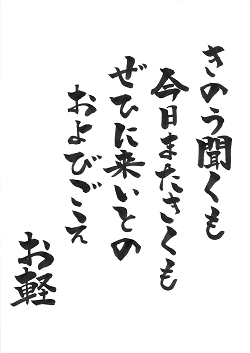 きのう聞くも
今日またきくも
ぜひに来いとの
およびごえ
お軽